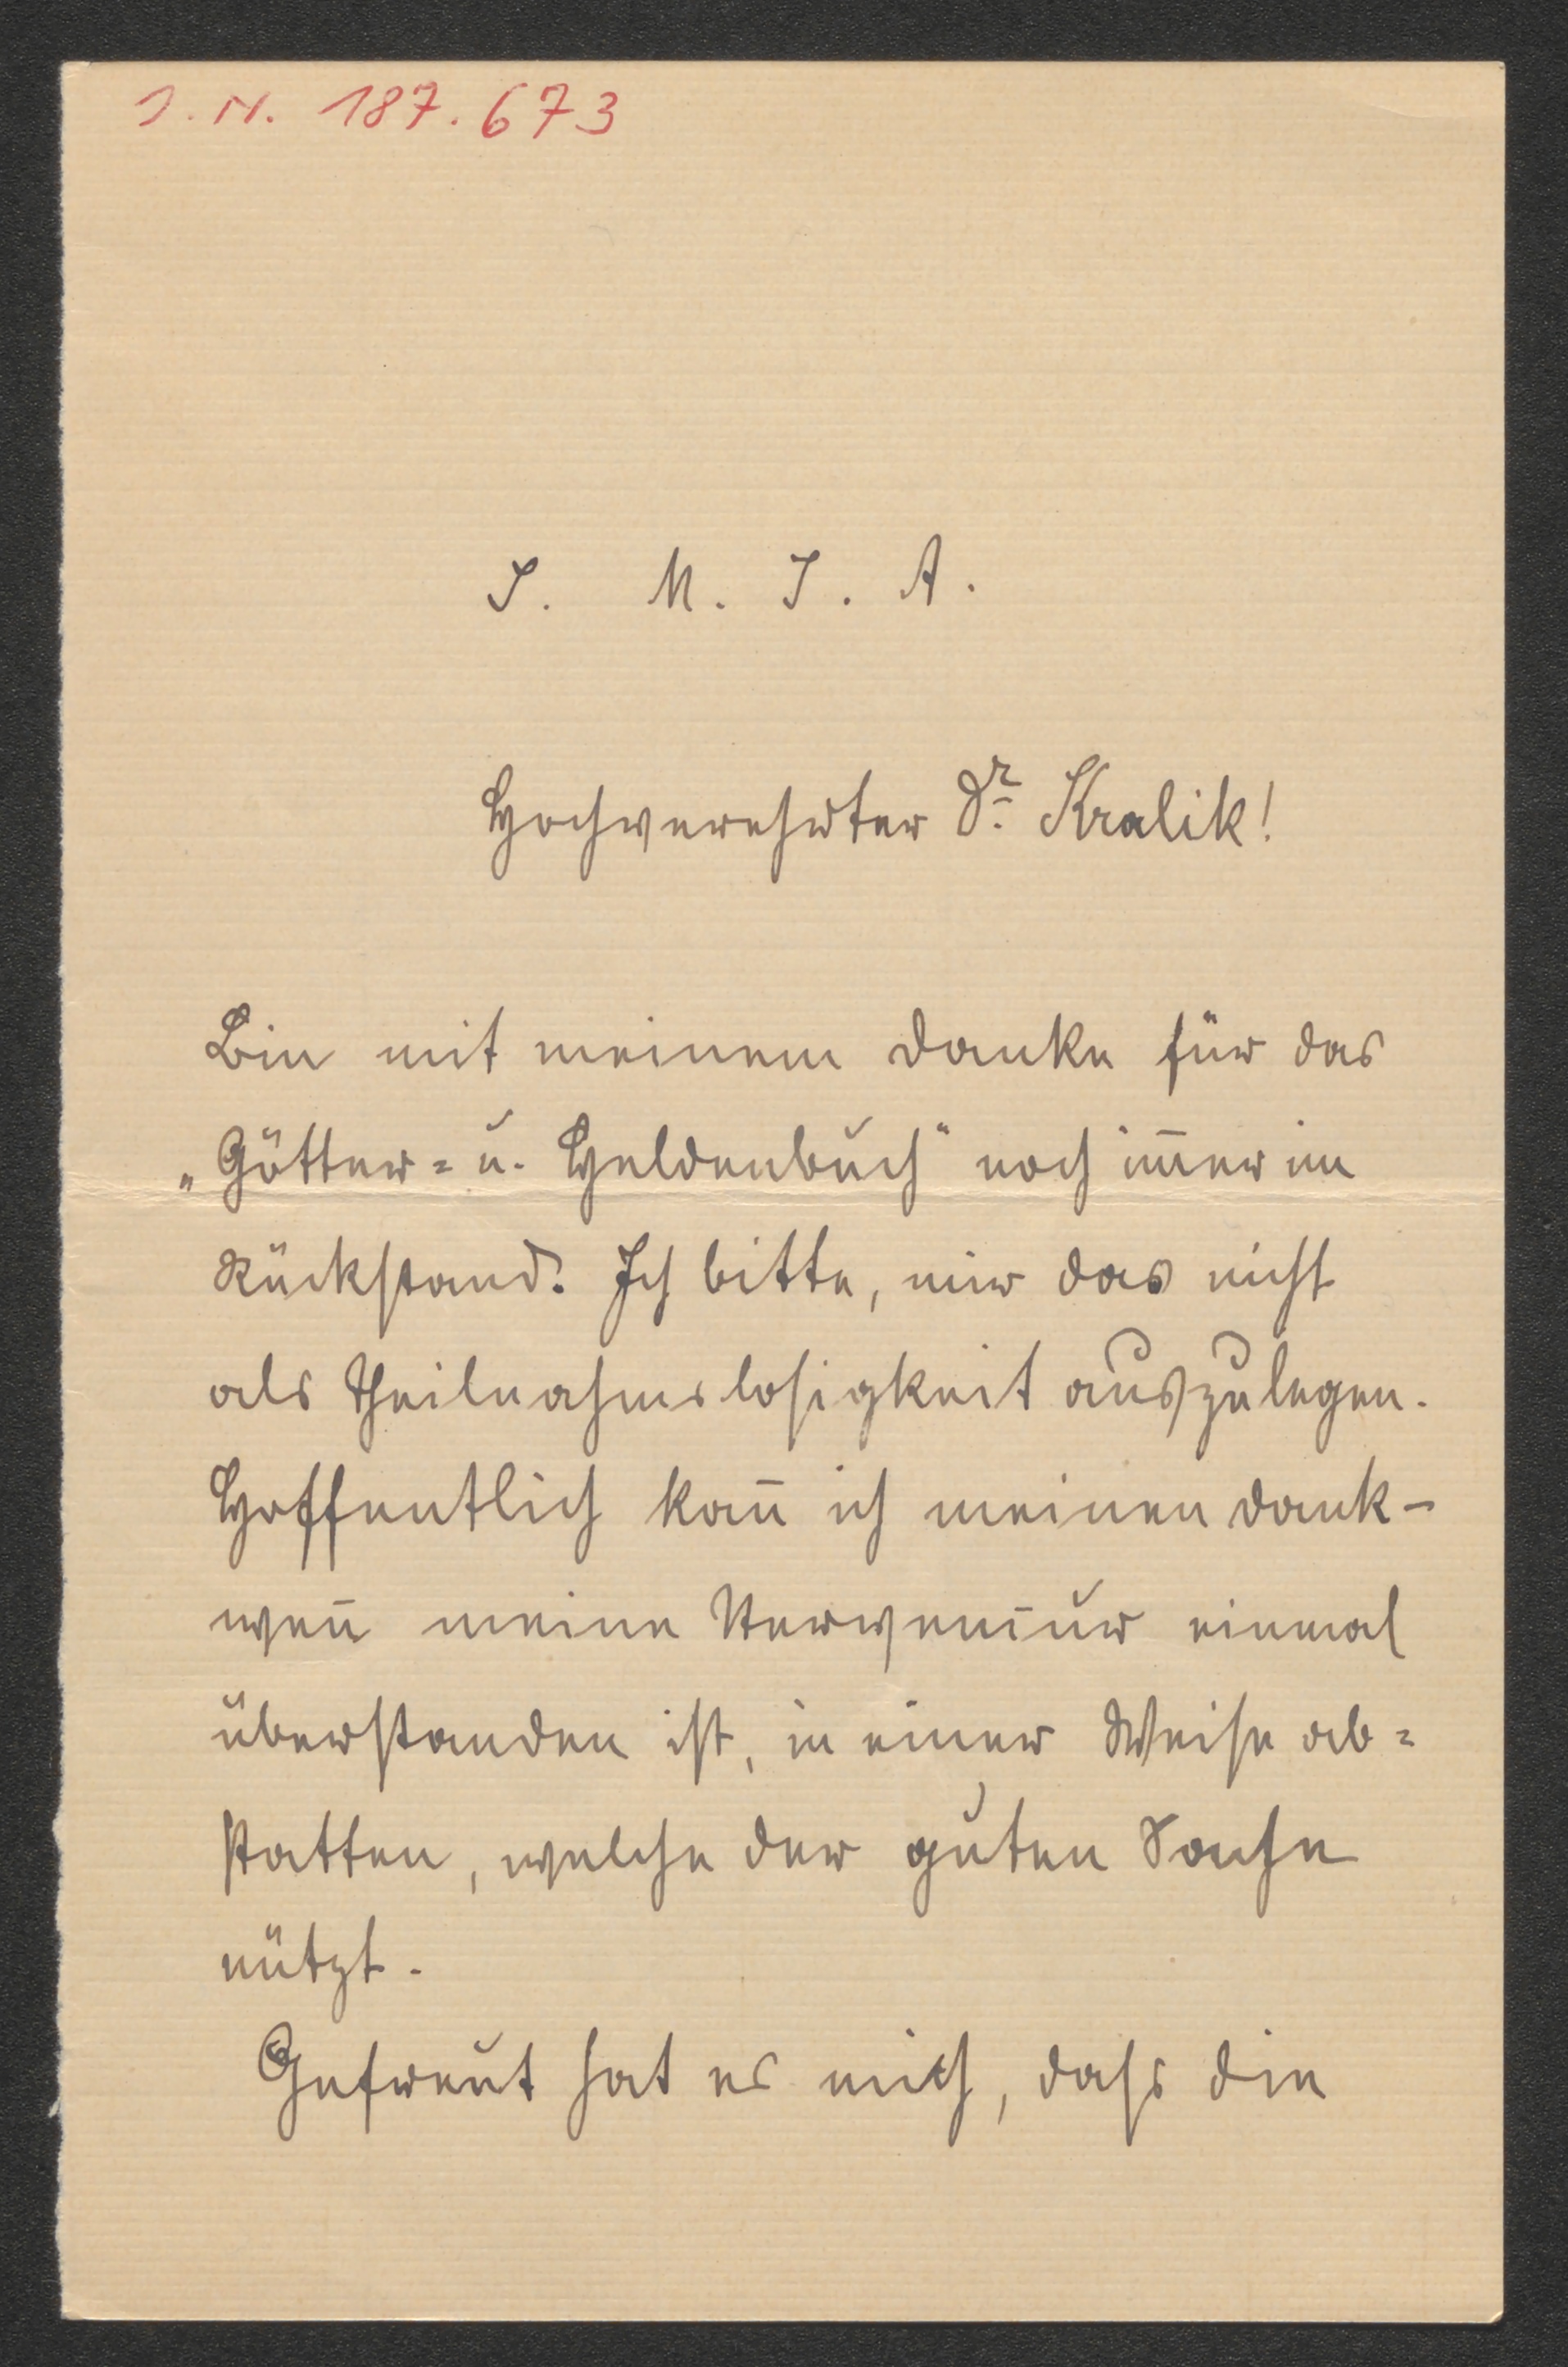 I. N. 187.673
J. M. J. A.
Hochverehrter Dr. Kralik!
Bin mit meinem Danke für das
„Götter= u. Heldenbuch" noch im̅er im
Rückstand. Ich bitte, mir das nicht
als Theilnahmslosigkeit auszulegen.
Hoffentlich kan̅ ich meinen Dank –
wen̅ meine
einmal
überstanden ist, in einer Weise ab=
statten, welche der guten Sache
nützt.
Gefreut hat es mich, dass die